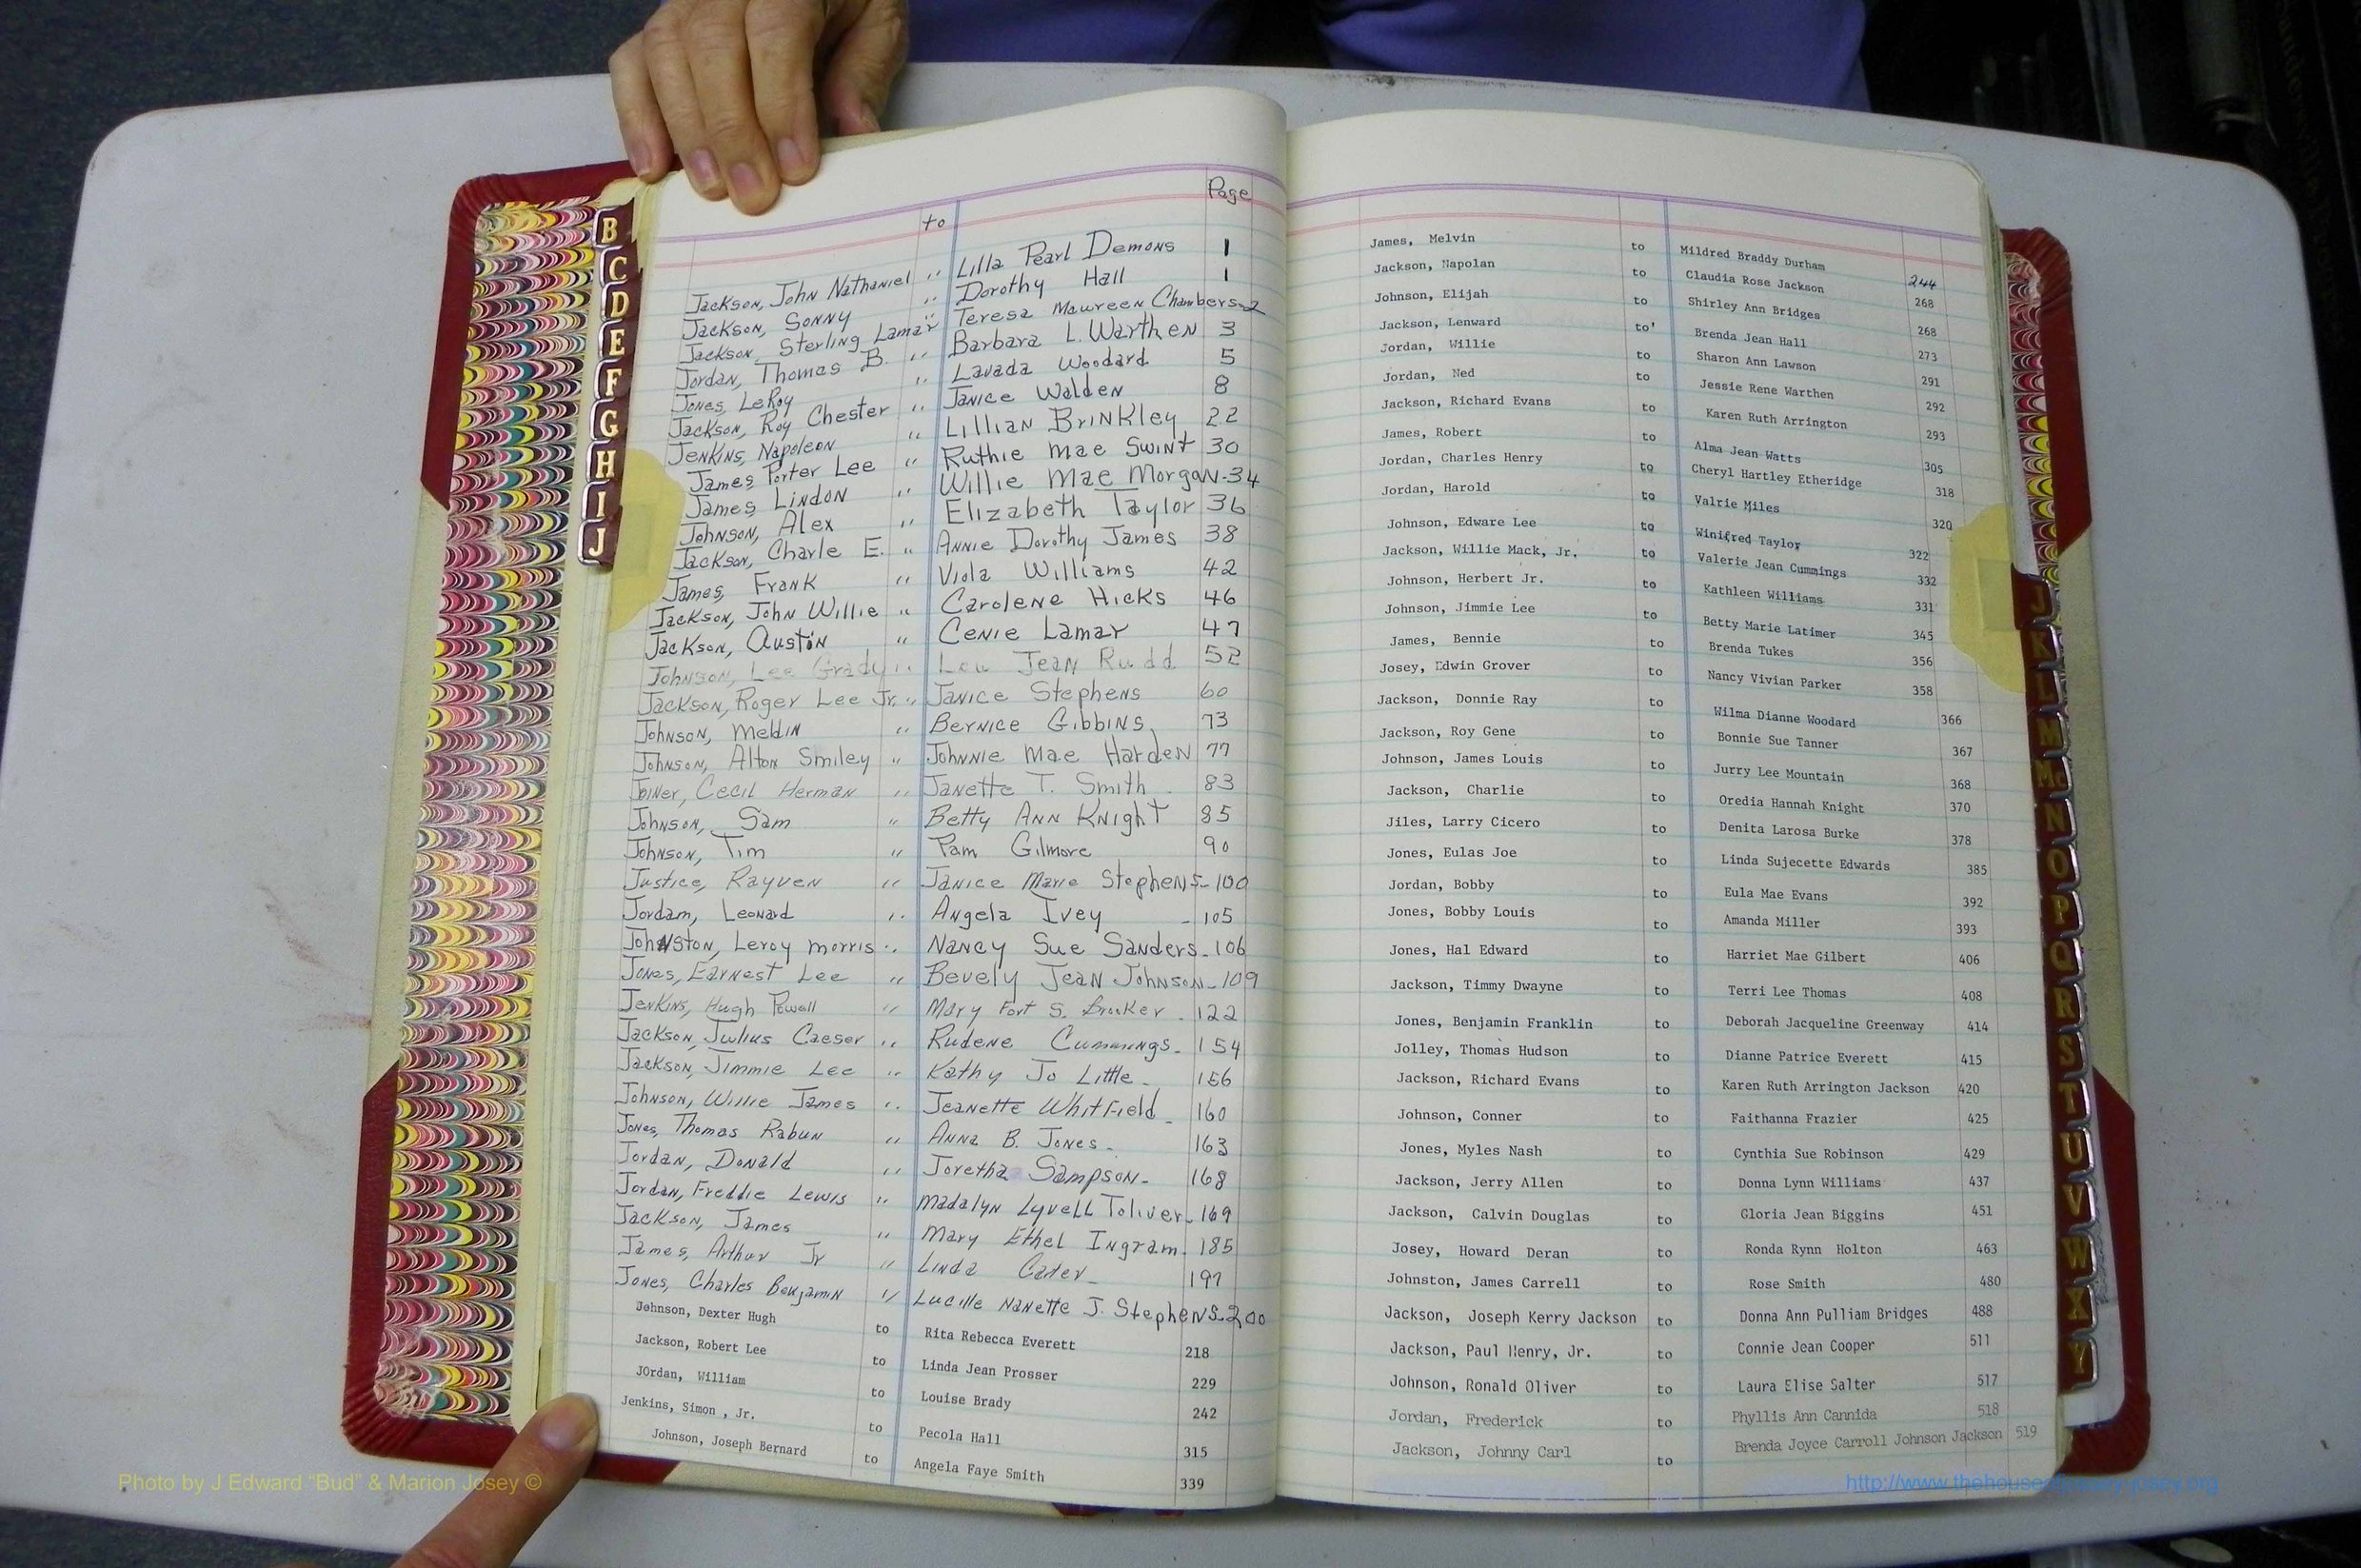 to Page
Jackson, John Nathaniel " Lilla Pearl Demons 1
Jackson, Sonny " Dorothy Hall 1
Jackson, Sterling Lamar " Teresa Maureen Chambers-2
Jordan, Thomas B. " Barbara L. Warthen 3
Jones, LeRoy " Lavada Woodard 5
Jackson, Roy Chester " Janice Walden 8
Jenkins, Napoleon " Lillian Brinkley 22
James, Porter Lee " Ruthie Mae Swint 30
James, Lindon " Willie Mae Morgan-34
Johnson, Alex " Elizabeth Taylor 36
Jackson, Charle E. " Annie Dorothy James 38
James, Frank " Viola Williams 42
Jackson, John Willie " Carolene Hicks 46
Jackson, Austin " Cenie Lamar 47
Johnson, Lee Grady " Lou Jean Rudd 52
Jackson, Roger Lee Jr. " Janice Stephens 60
Johnson, Meldin " Bernice Gibbins 73
Johnson, Alton Smiley " Johnnie Mae Harden 77
Joiner, Cecil Herman " Janette T. Smith 83
Johnson, Sam " Betty Ann Knight 85
Johnson, Tim " Pam Gilmore 90
Justice, Rayven " Janice Marie Stephens-100
Jordam, Leonard " Angela Ivey -105
Johnston, Leroy Morris " Nancy Sue Sanders-106
Jones, Earnest Lee " Bevely Jean Johnson-109
Jenkins, Hugh Powell " Mary Fort S. Brooker -122
Jackson, Julius Caeser " Rudene Cummings-154
Jackson, Jimmie Lee " Kathy Jo Little- 156
Johnson, Willie James " Jeanette Whitfield- 160
Jones, Thomas Rabun " Anna B. Jones- 163
Jordan, Donald " Joretha Sampson- 168
Jordan, Freddie Lewis " Madalyn Lyvell Toliver-169
Jackson, James " Mary Ethel Ingram-185
James, Arthur Jr " Linda Carter- 197
Jones, Charles Benjamin " Lucille Nanette J. Stephens-200
Johnson, Dexter Hugh to Rita Rebecca Everett 218
Jackson, Robert Lee to Linda Jean Prosser 229
JOrdan, William to Louise Brady 242
Jenkins, Simon , Jr. to Pecola Hall 315
Johnson, Joseph Bernard to Angela Faye Smith 339
James, Melvin to Mildred Braddy Durham 244
Jackson, Napolan to Claudia Rose Jackson 268
Johnson, Elijah to Shirley Ann Bridges 268
Jackson, Lenward to' Brenda Jean Hall 273
Jordan, Willie to Sharon Ann Lawson 291
Jordan, Ned to Jessie Rene Warthen 292
Jackson, Richard Evans to Karen Ruth Arrington 293
James, Robert to Alma Jean Watts 305
Jordan, Charles Henry to Cheryl Hartley Etheridge 318
Jordan, Harold to Valrie Miles 320
Johnson, Edware Lee to Winifred Taylor 322
Jackson, Willie Mack, Jr. to Valerie Jean Cummings 332
Johnson, Herbert Jr. to Kathleen Williams 331
Johnson, Jimmie Lee to Betty Marie Latimer 345
James, Bennie to Brenda Tukes 356
Josey, Edwin Grover to Nancy Vivian Parker 358
Jackson, Donnie Ray to Wilma Dianne Woodard 366
Jackson, Roy Gene to Bonnie Sue Tanner 367
Johnson, James Louis to Jurry Lee Mountain 368
Jackson, Charlie to Oredia Hannah Knight 370
Jiles, Larry Cicero to Denita Larosa Burke 378
Jones, Eulas Joe to Linda Sujecette Edwards 385
Jordan, Bobby to Eula Mae Evans 392
Jones, Bobby Louis to Amanda Miller 393
Jones, Hal Edward to Harriet Mae Gilbert 406
Jackson, Timmy Dwayne to Terri Lee Thomas 408
Jones, Benjamin Franklin to Deborah Jacqueline Greenway 414
Jolley, Thomas Hudson to Dianne Patrice Everett 415
Jackson, Richard Evans to Karen Ruth Arrington Jackson 420
Johnson, Conner to Faithanna Frazier 425
Jones, Myles Nash to Cynthia Sue Robinson 429
Jackson, Jerry Allen to Donna Lynn Williams 437
Jackson, Calvin Douglas to Gloria Jean Biggins 451
Josey, Howard Deran to Ronda Rynn Holton 463
Johnston, James Carrell to Rose Smith 480
Jackson, Joseph Kerry Jackson to Donna Ann Pulliam Bridges 488
Jackson, Paul Henry, Jr. to Connie Jean Cooper 511
Johnson, Ronald Oliver to Laura Elise Salter 517
Jordan, Frederick to Phyllis Ann Cannida 518
Jackson, Johnny Carl to Brenda Joyce Carroll Johnson Jackson 519
B
C
D
E
F
G
H
I
J
J
K
L
M
Mc
N
O
P
Q
R
S
T
U
V
W
X
Y
Photo by J Edward “Bud” & Marion Josey ©
http://www.thehouseofjossey-josey.org